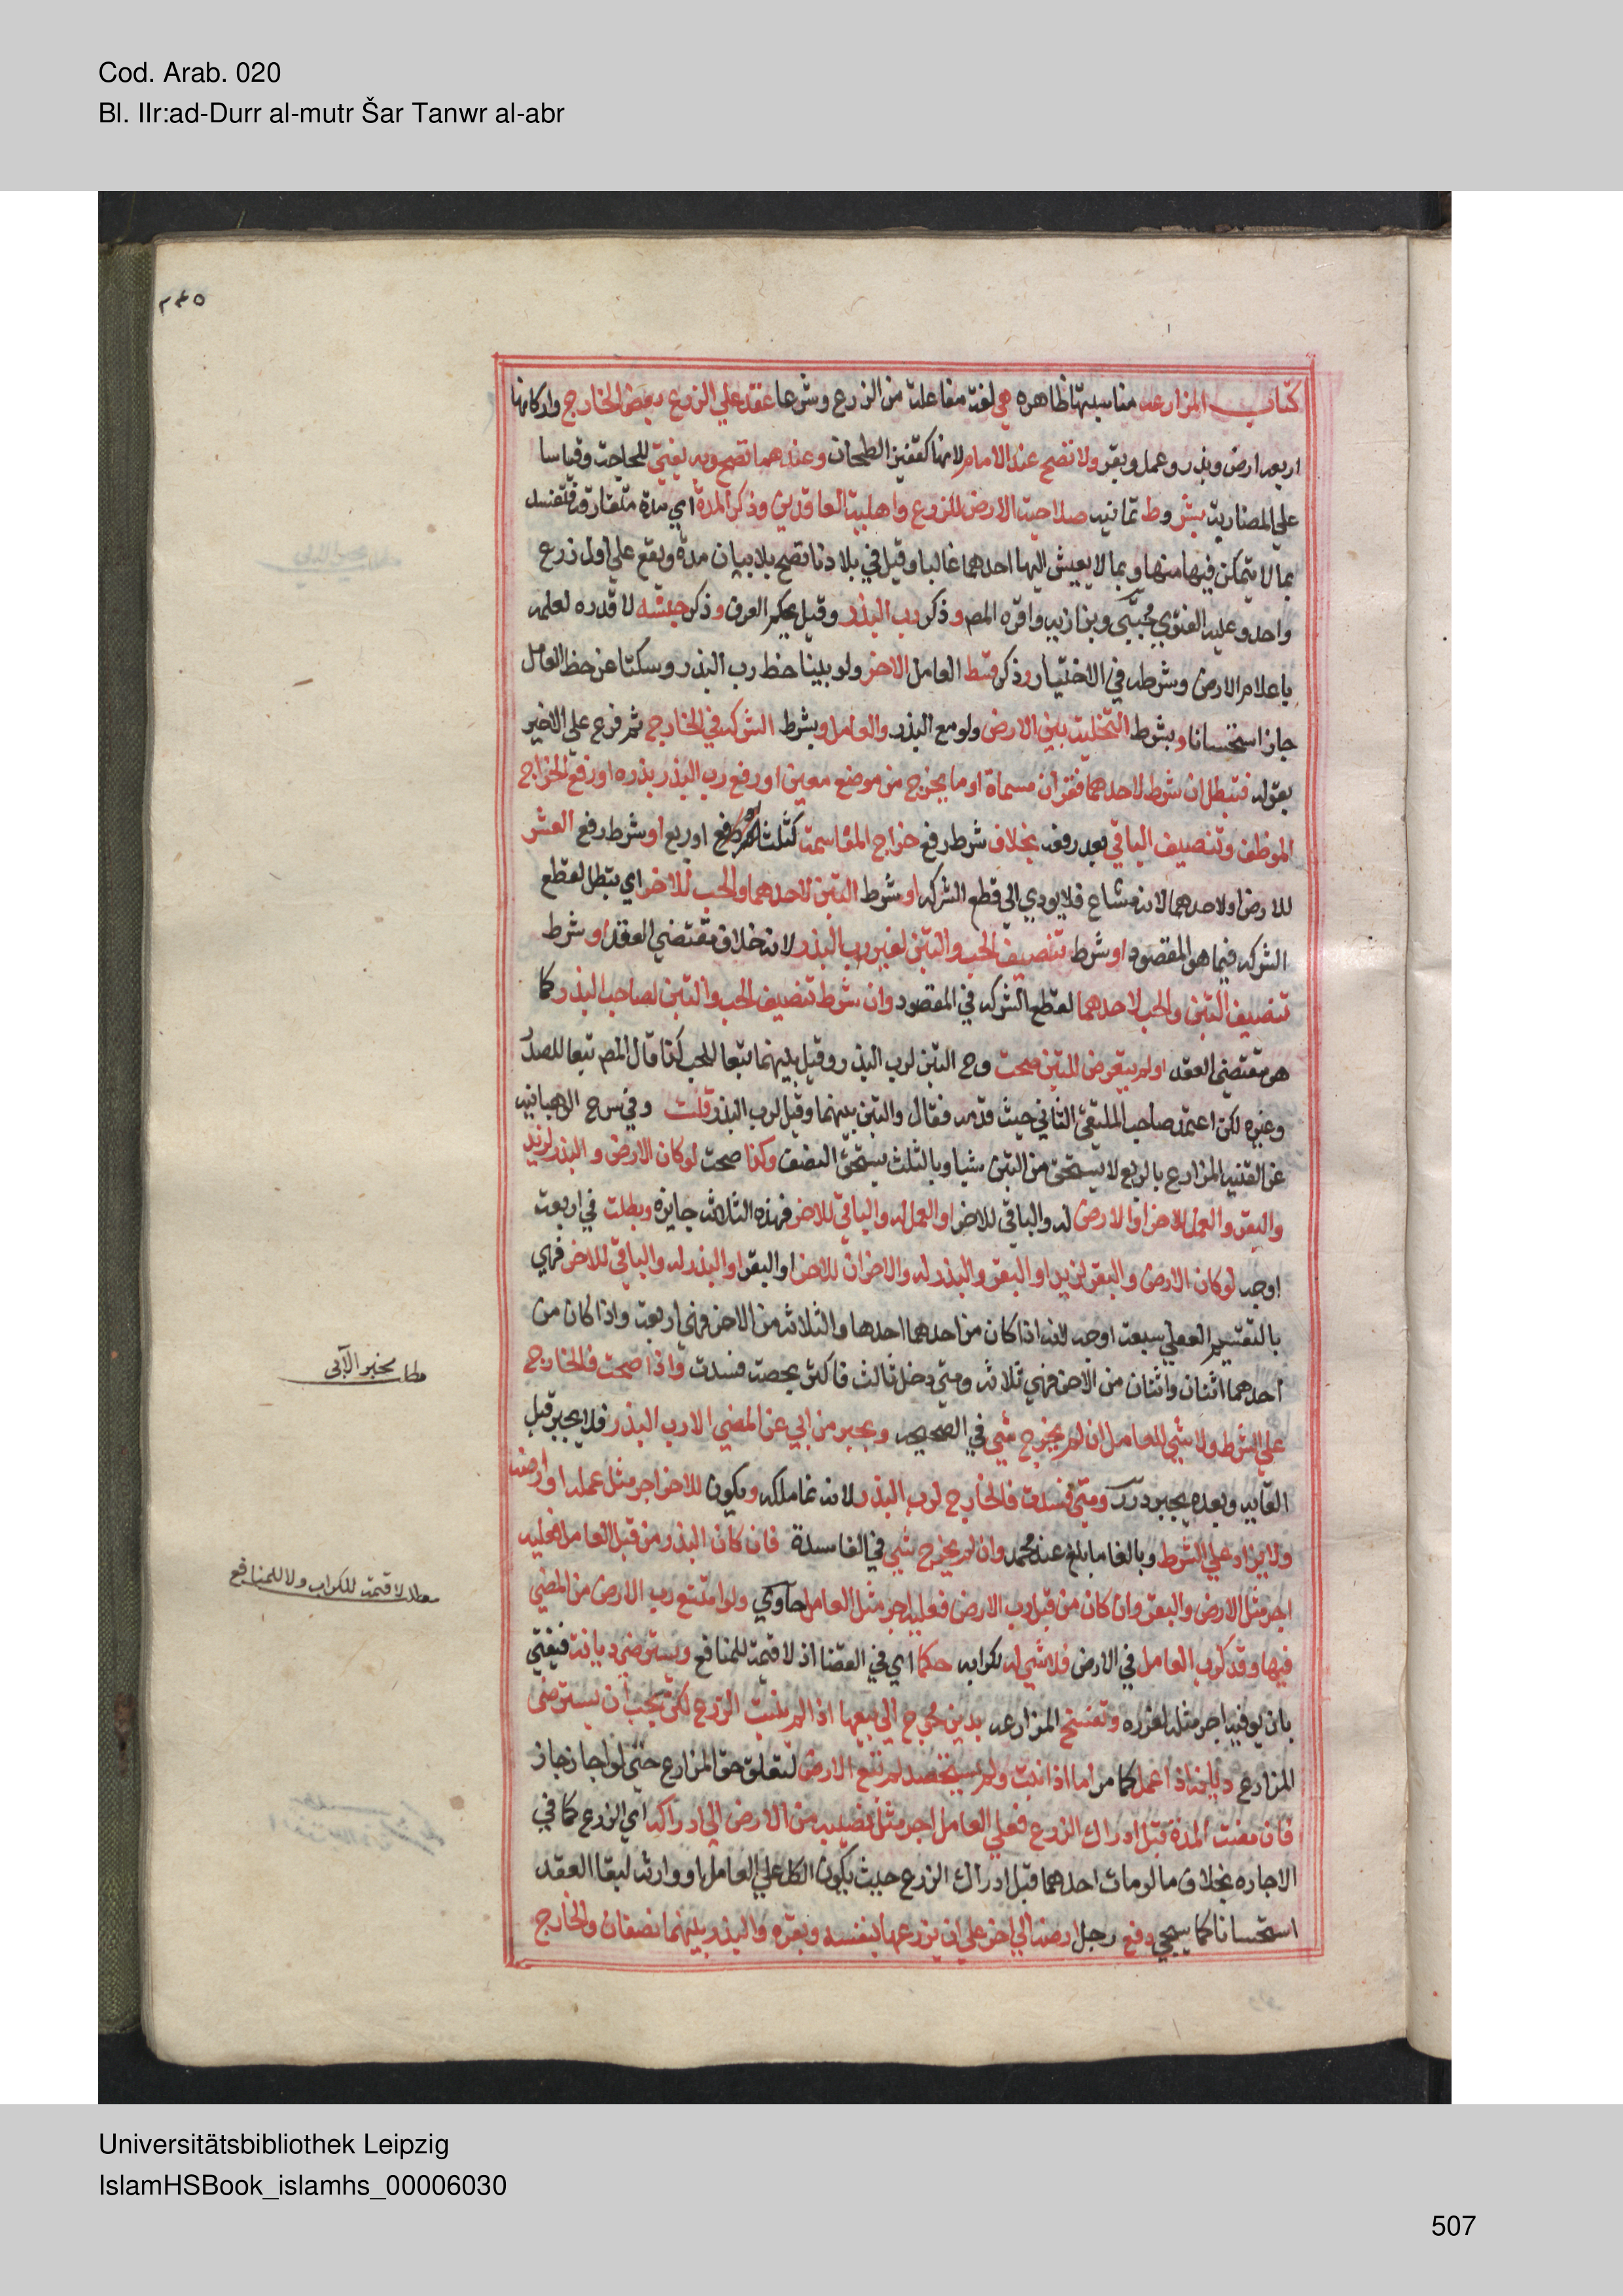 Cod. Arab. 020
Bl. IIr:ad-Durr al-mutr Šar Tanwr al-abr
٢٤٥
كتاب المزارعه مناسبتها ظاهره هي لغة مفاعلة من الزرع وشرعا عقد علي الزرع ببعض الخارج واركانها
اربعه ارض وبذر وعمل وبقر ولا تصح عند الامام لانها كقفيز الطحان وعندهما تصح وبه يفتي للحاجة وقياسا
علي المضاربة بشروط ثمانيه صلاحية الارض للزرع واهلية العاقدين وذكر المدة اي مدة متعارفة فتفسد
بما لا يتمكن فيها منها وبما لا يعيش اليها احدهما غالبا وقيل في بلادنا تصح بلا بيان مدة ويقع علي اول زرع
واحد وعليه الفتوي مجتبي وبزازيه واقره المص وذكر رب البذر وقيل يحكم العرف وذكر جنسه لا قدره لعلمه
باعلام الارض وشرطه في الاختيار وذكر قسط العامل الاخر ولو بينا حظ رب البذر وسكتا عن حظ العامل
جاز استحسانا وبشرط التخلية بين الارض ولو مع البذر والعامل وبشرط الشركه في الخارج ثم فرع علي الاخير
بقوله فتبطل ان شرط لاحدهما قفزان مسماة او ما يخرج من موضع معين او رفع رب البذر بذره او رفع الخراج
الموظف وتنصيف الباقي بعد رفعه بخلاف شرط رفع خراج المقاسمة كثلث او ربع او شرط رفع العشر
للارض او لاحدهما لانه مشاع فلا يودي الي قطع الشركه او شرط التبن لاحدهما والحب للاخر اي تبطل لقطع
الشركه فيما هو المقصود او شرط تنصيف الحب والتبن لغير رب البذر لانه خلاف مقتضي العقد او شرط
تنصيف التبن والحب لاحدهما لقطع الشركه في المقصود وان شرط تنصيف الحب والتبن لصاحب البذر كما
هو مقتضي العقد او لم يتعرض للتبن صحت وح التبن لرب البذر وقيل بينهما تبعا للحب كذا قال المص تبعا للصدر
وغيره لكن اعتمد صاحب الملتقي الثاني حيث قدمه فقال والتبن بينهما وقيل لرب البذر قلت وفي شرح الوهبانيه
عن القنيه المزارع بالربع لا يستحق من التبن شيا وبالثلث يستحق النصف وكذا صحت لو كان الارض والبذر لزيد
والبقر والعمل للاخر او الارض له والباقي للاخر او العمل له والباقي للاخر فهذه الثلاثه جايزه وبطلت في اربعة
اوجه لو كان الارض والبقر لزيد او البقر والبذر له والاخران للاخر او البقر او البذر له والباقي للاخر فهي
بالتقسيم العقلي سبعة اوجه لانه اذا كان من احدهما احدها والثلاثه من الاخر فهي اربعة واذا كان من
احدهما اثنان واثنان من الاخر فهي ثلاثه ومتي دخل ثالث فاكثر بحصة فسدت واذا صحت فالخارج
علي الشرط ولا شي للعامل ان لم يخرج شي في الصحيحه ويجبر من ابي عن المضي الا رب البذر فلا يجبر قبل
القايه وبعده يجبر درر ومتي فسدت فالخارج لرب البذر لانه نما ملكه ويكون للاخر اجر مثل عمله او ارضه
ولا يزاد علي الشرط وبالغا ما بلغ عند محمد وان لم يخرج شي في الفاسدة فان كان البذر من قبل العامل فعليه
اجر مثل الارض والبقر وان كان من قبل رب الارض فعليه اجر مثل العامل حاوي ولو امتنع رب الارض من المضي
فيها وقد كرب العامل في الارض فلا شي له لكرابه حكما اي في القضا اذ لا قيمة للمنافع ويسترضي ديانة فيفتي
بان يوفيه اجر مثله لغرره وتفسخ المزارعه بدين محوج الي بيعها اذا لم ينبت الزرع لكن يجب ان يسترضي
المزارع ديانة اذا عمل كما مر اما اذا نبت ولم يستحصد لم تبع الارض لتعلق حق المزارع حتي لو اجاز جاز
فان مضت المدة قبل ادراك الزرع فعلي العامل اجر مثل نصيبه من الارض الي ادراكه اي الزرع كما في
الاجاره بخلاف ما لو مات احدهما قبل ادراك الزرع حيث يكون الكل علي العامل او وارثه لبقا العقد
استحسانا كما سيجي دفع رجل ارضه الي اخر علي ان يزرعها بنفسه وبقره والبذر بينهما نصفان والخارج
مطلب يخير الآبي
مطلب لا قيمة للكراب ولا للمنافع
Universitätsbibliothek Leipzig
IslamHSBook_islamhs_00006030
507